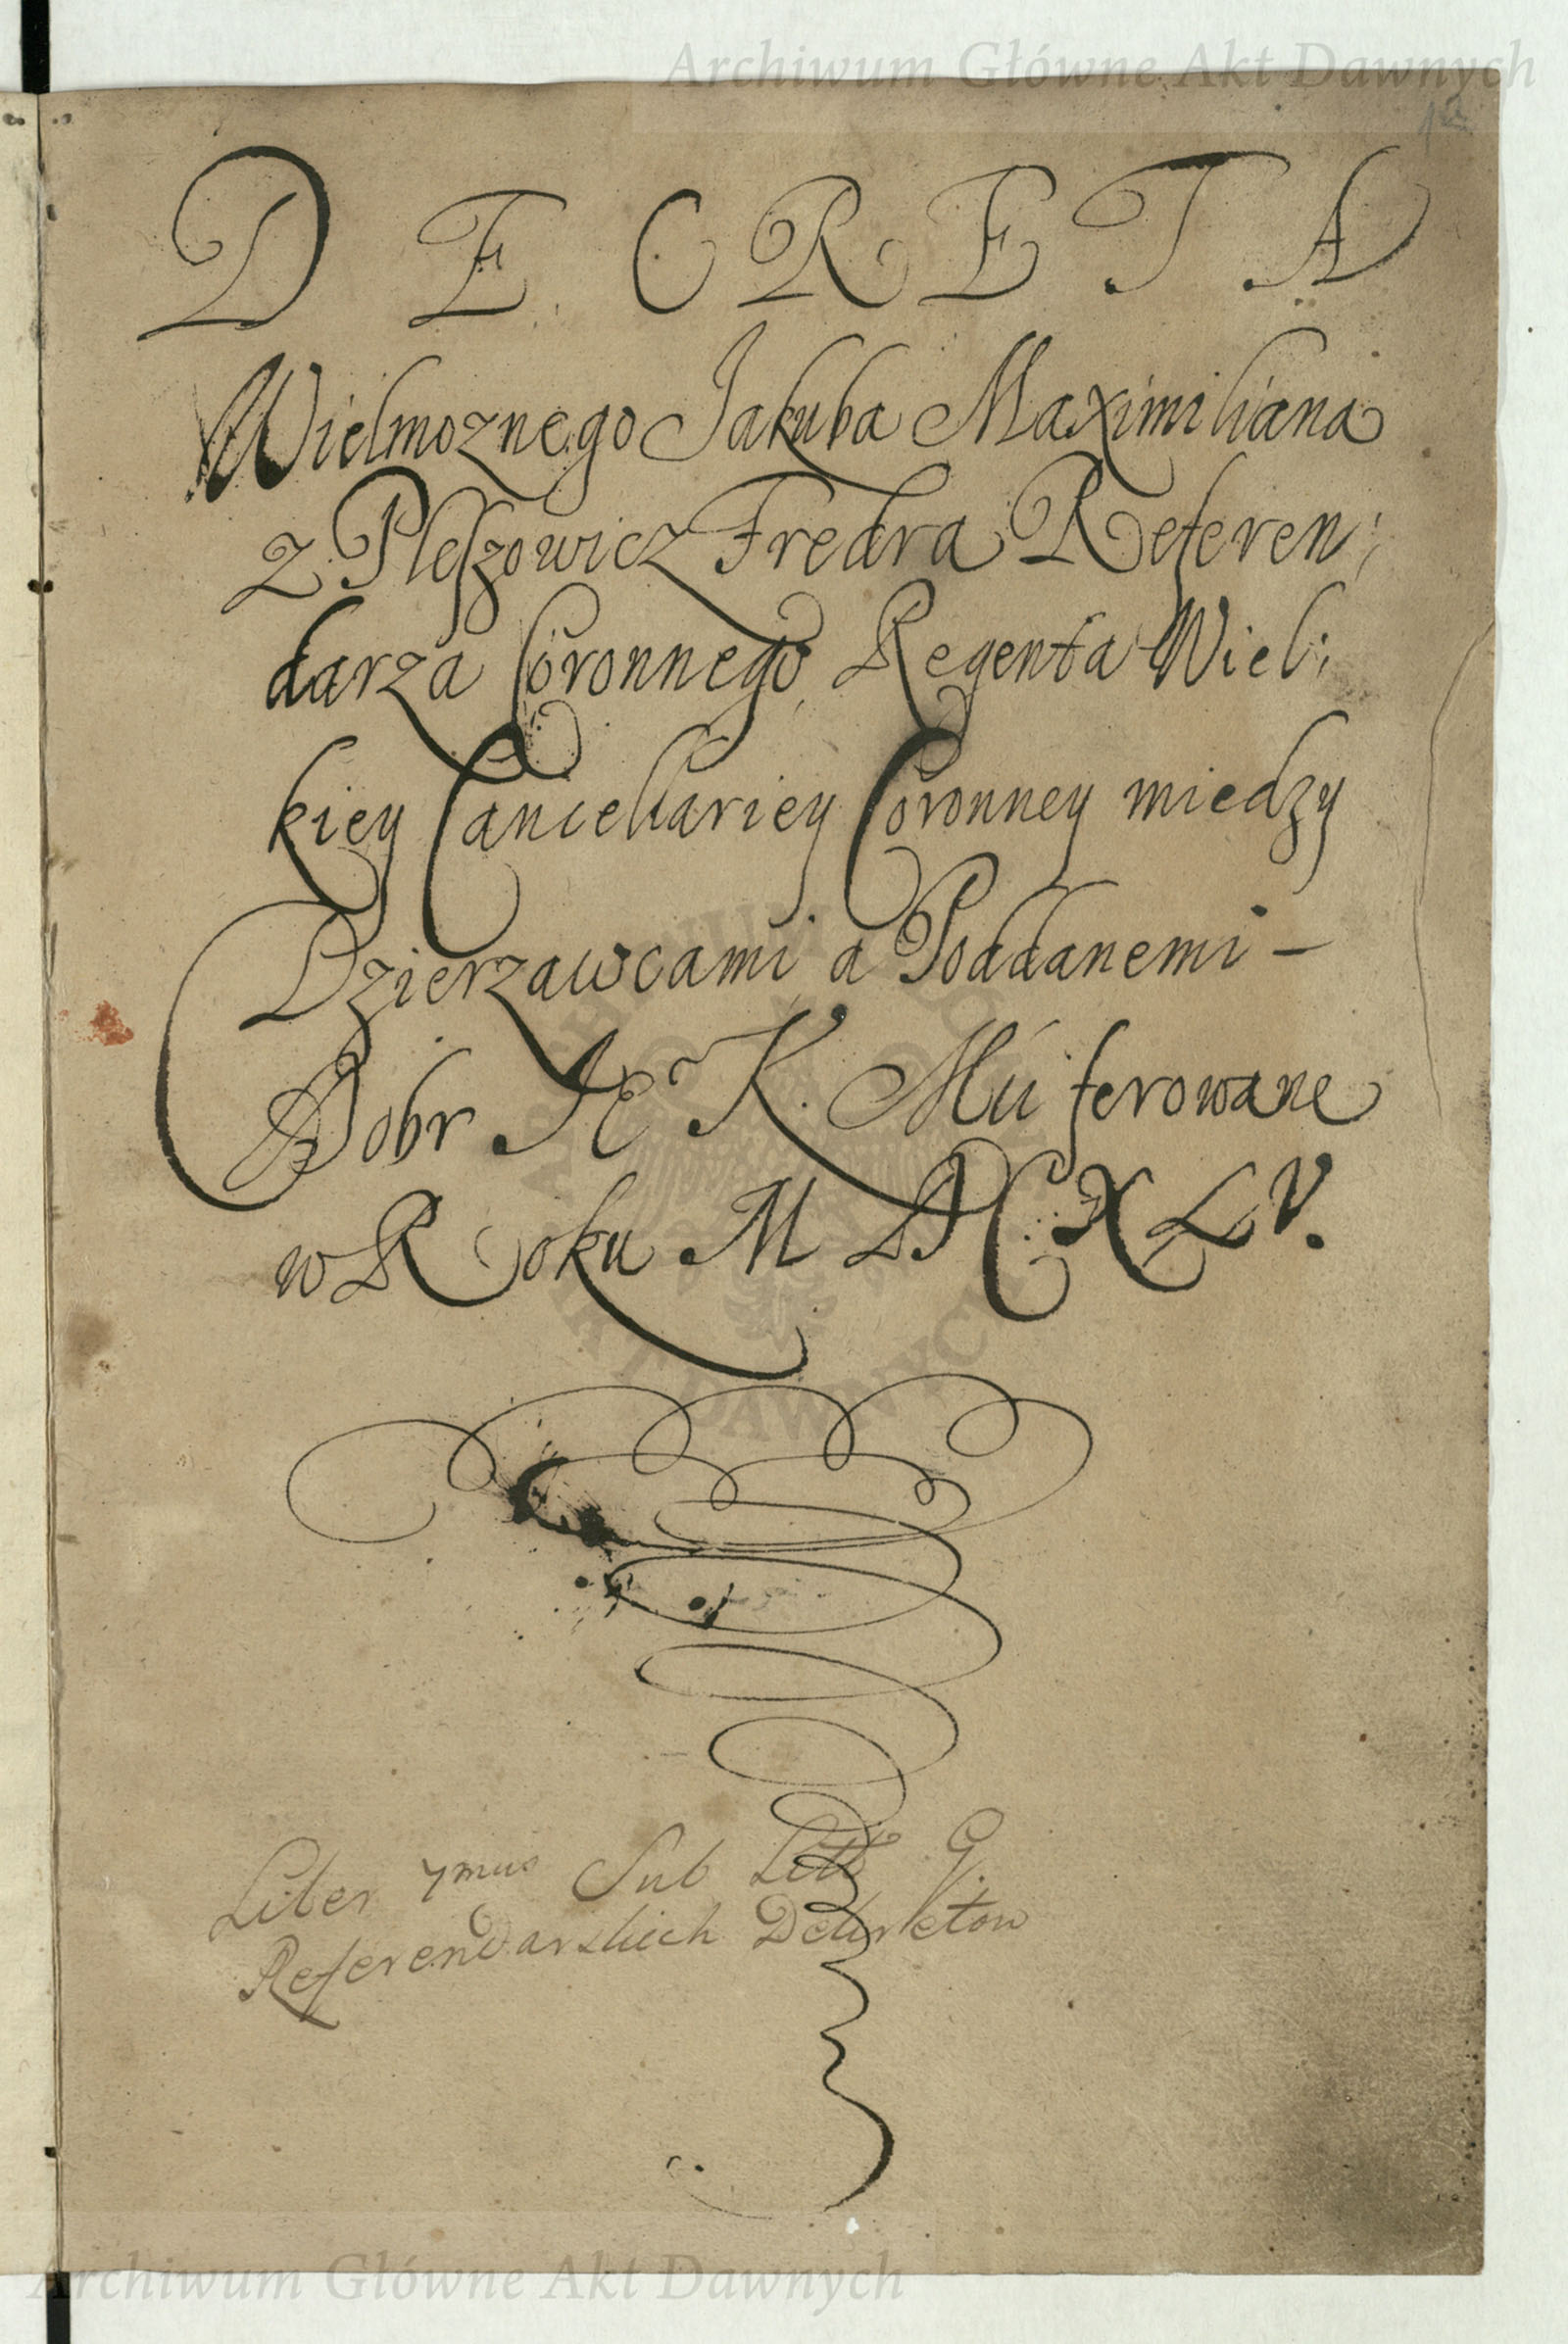 Archiwum Główne Akt Dawnych
DECRETA
Wielmoznego Jakuba Maximiliana
z Pleszowicz Fredra Referen:
darza Coronnego Regenta Wiel:
kiey Cancellariey Coronney miedzy
Dzierzawcami a Poddanemi –
Dobr JE K. Mći ferowane
w Roku M DC XLV.
Liber 7mus Sub Litt G.
Referendarskich Dekretow
Archiwum Główne Akt Dawnych